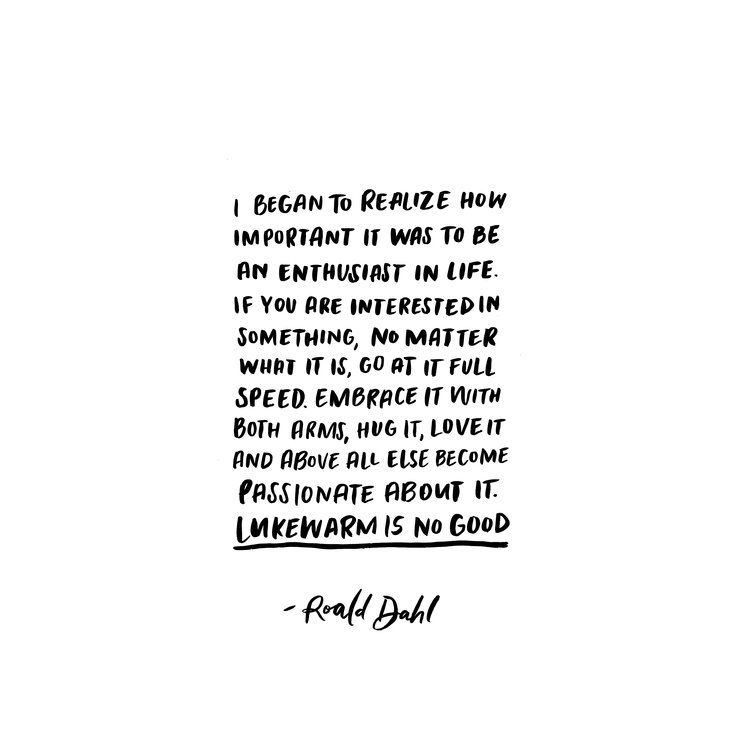 I BEGAN TO REALIZE HOW
IMPORTANT IT WAS TO BE
AN ENTHUSIAST IN LIFE.
IF YOU ARE INTERESTED IN
SOMETHING, NO MATTER
WHAT IT IS, GO AT IT FULL
SPEED. EMBRACE IT WITH
BOTH ARMS, HUG IT, LOVE IT
AND ABOVE ALL ELSE BECOME
PASSIONATE ABOUT IT.
LUKEWARM IS NO GOOD
- Roald Dahl